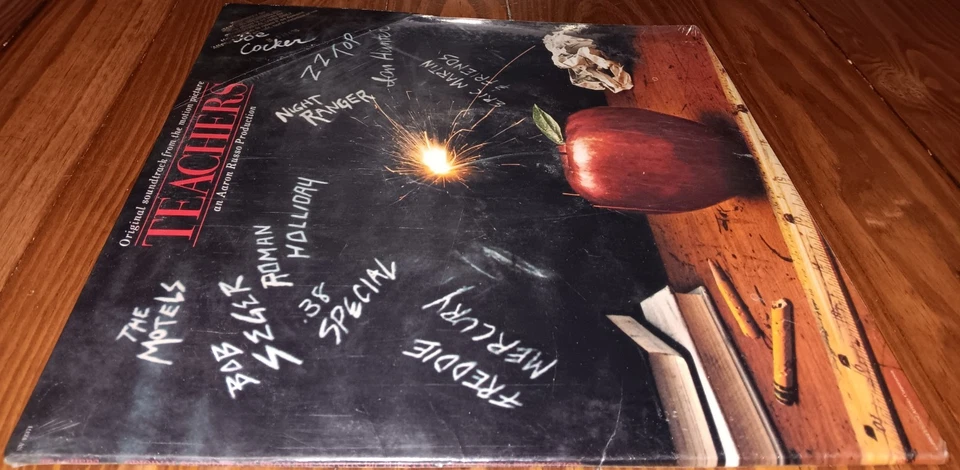 Original soundtrack from the motion picture
TEACHERS
an Aaron Russo Production
Joe
Cocker
ZZ TOP
Ian Hunter
ERIC MARTIN
& FRIENDS
NIGHT
RANGER
ROMAN
HOLLIDAY
THE
MOTELS
BOB
SEGER
.38
SPECIAL
FREDDIE
MERCURY